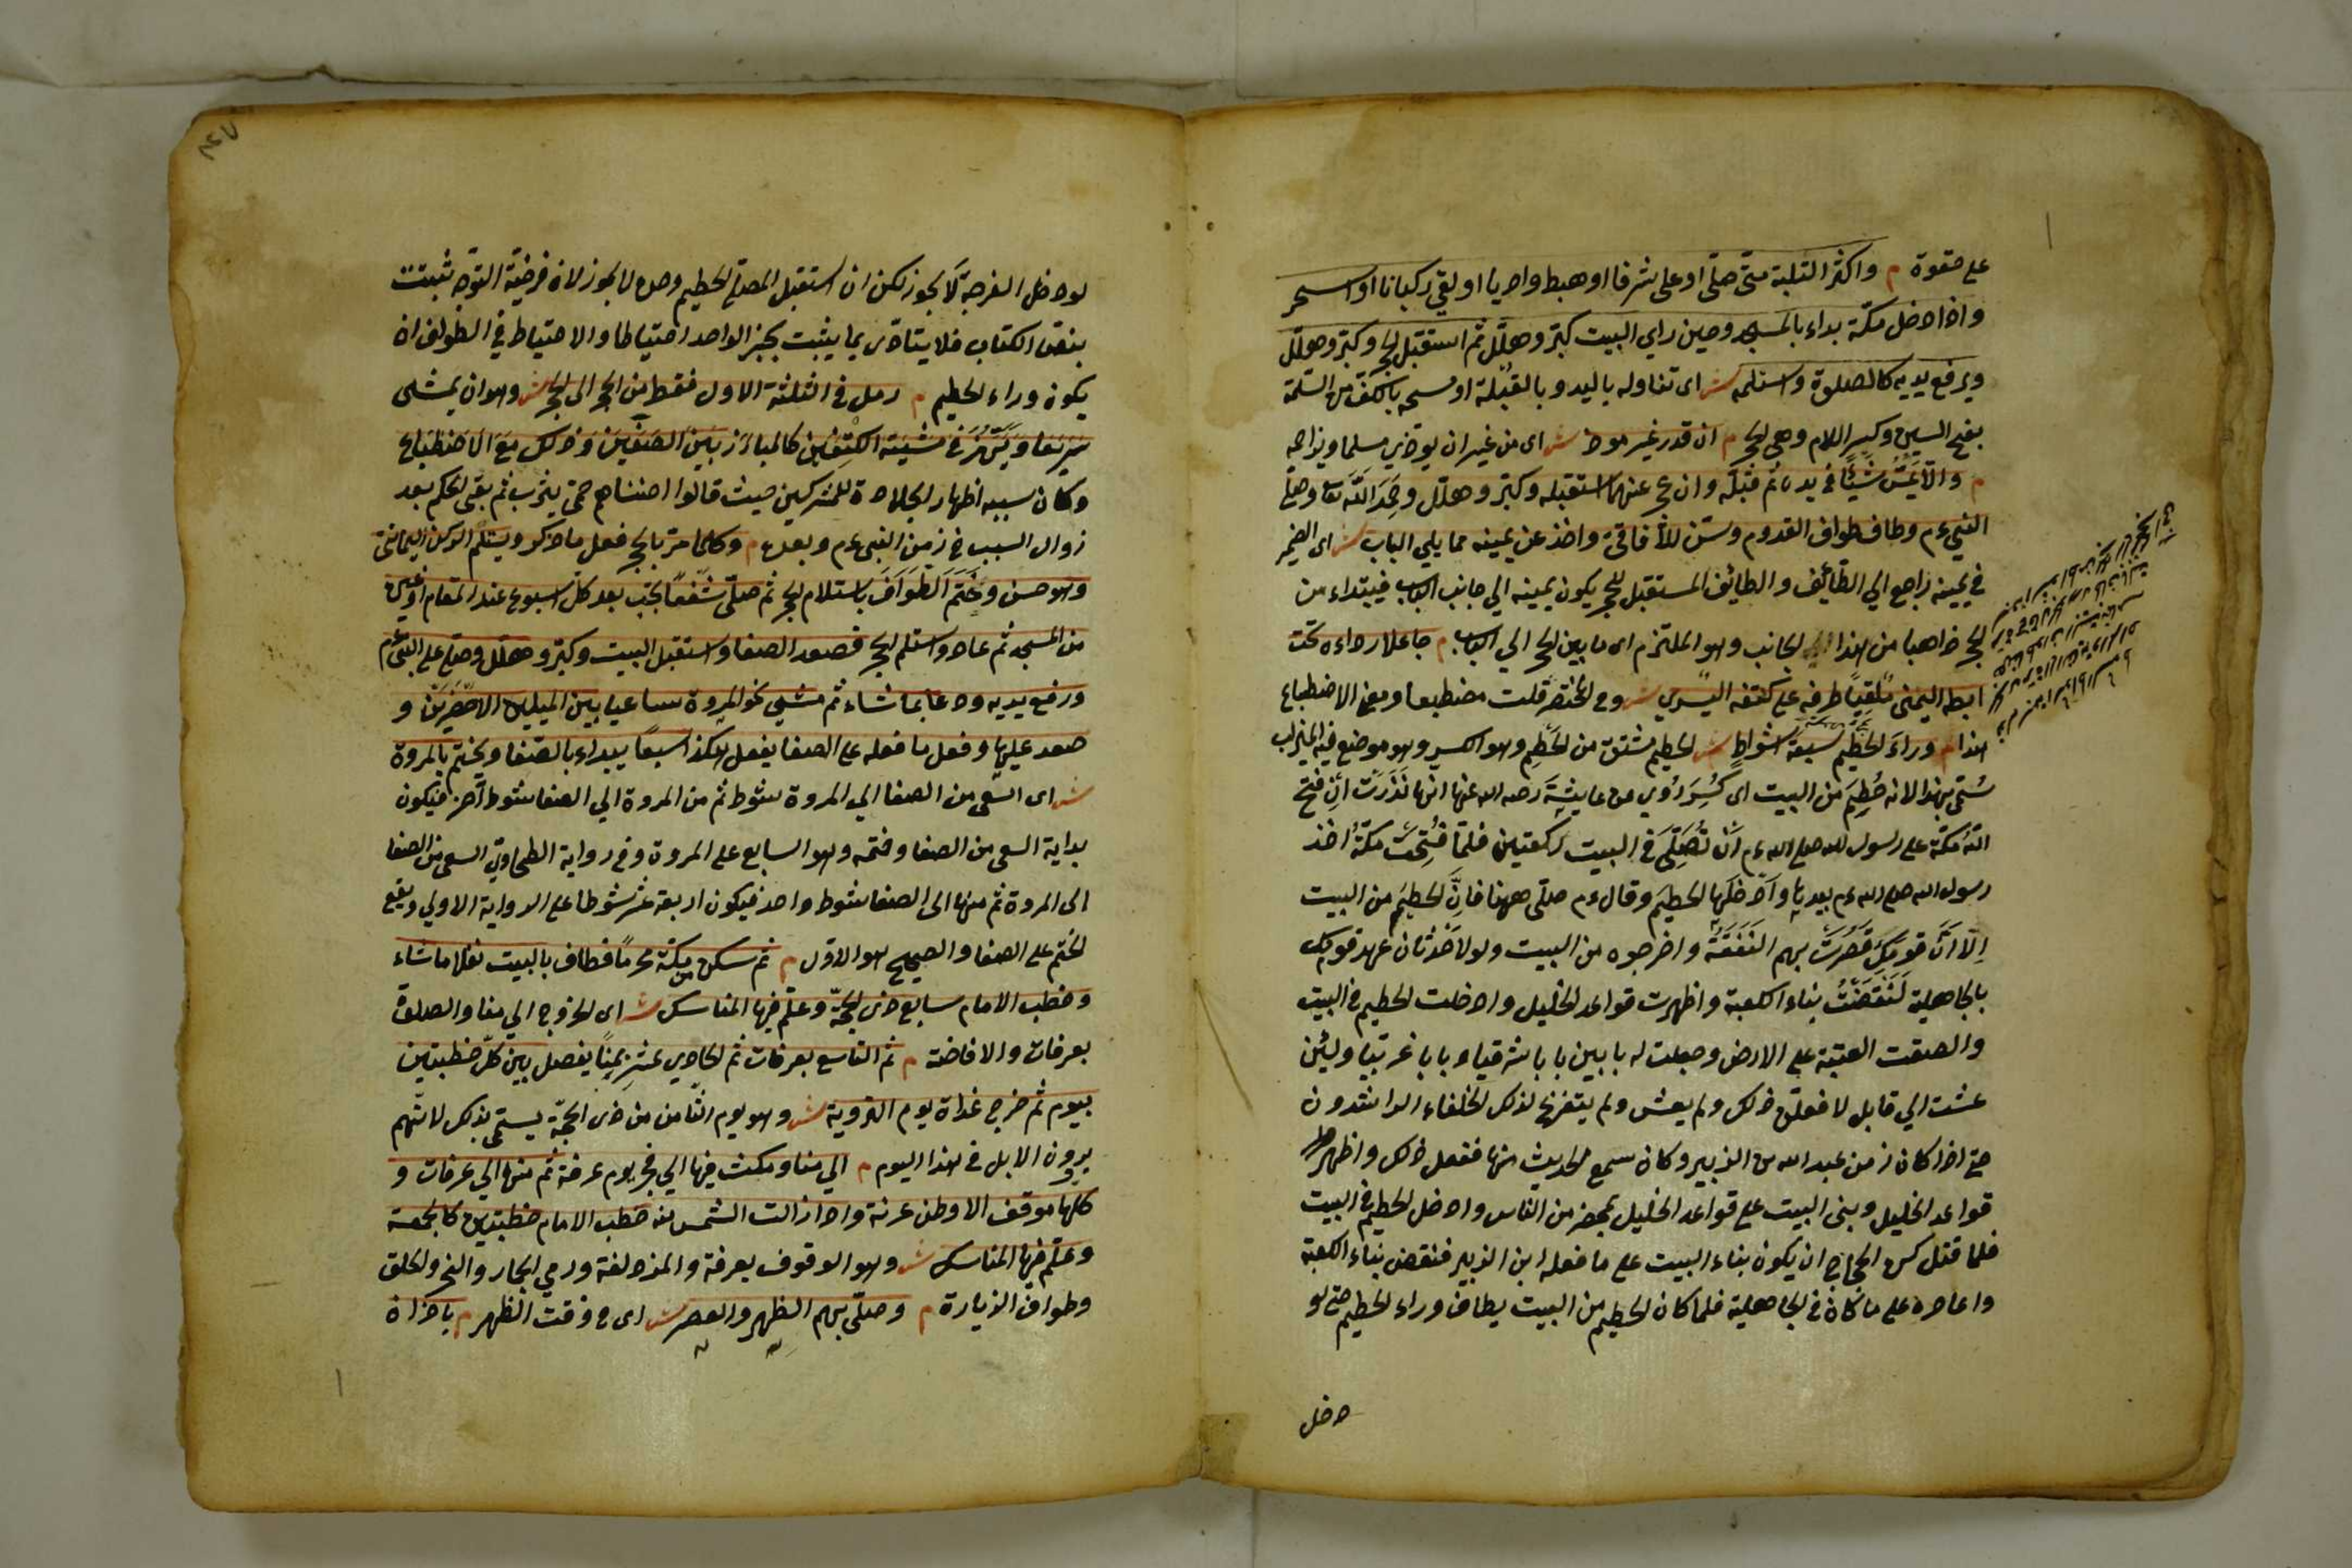 على حقوة م واكثر التلبية متى صلى او على شرفا او هبط واديا او لقي ركبانا او اسحر
واذا دخل مكة بداء بالمسجد وحين راي البيت كبر وهلل ثم استقبل الحجر وكبر وهلل
ويرفع يديه كالصلوة واستلمه ش اى تناوله باليد وبالقبلة او مسحه بالكف من السلمة
بفتح السين وكسر اللام وهى الحجر م ان قدر غير موذ ش اى من غير ان يوذي مسلما ويزاحمه
م والا يمس شيئا فى يده ثم قبله وان عجز عنهما استقبله وكبر وهلل وحمد الله تعا وصلى
النبى عم وطاف طواف القدوم وسن للآفاقى واخذ عن يمينه مما يلي الباب ش اى الضمير
فى يمينه راجع الي الطائف والطائف المستقبل للحجر يكون يمينه الي جانب الباب فيبتداء من
الحجر ذاهبا من هذا الجانب وهو الملتزم اى ما بين الحجر الي الباب م جاعلا رداءه تحت
ابطه اليمنى ملقيا طرفه على كتفه اليسري ش وفى المختصر قلت مضطبعا ومعنى الاضطباع
هذا م وراء الحطيم سبعة اشواط ش الحطيم مشتق من الحطم وهو الكسر وهو موضع فيه الميزاب
سمى بهذا لانه حطم من البيت اى كسر روي عن عايشة رضى الله عنها انها نذرت ان فتح
الله مكة على رسول الله صلى الله عم ان تصلى فى البيت ركعتين فلما فتحت مكة اخذ
رسول الله صلى الله عم بيدها وادخلها الحطيم وقال عم صلى ههنا فان الحطيم من البيت
الا ان قومك قصرت بهم النفقة واخرجوه من البيت ولولا حدثان عهد قومك
بالجاهلية لنقضت بناء الكعبة واظهرت قواعد الخليل وادخلت الحطيم فى البيت
والصقت العتبة على الارض وجعلت له بابين بابا شرقيا وبابا غربيا ولئن
عشت الي قابل لافعلن ذلك ولم يعش ولم يتفرغ لذلك الخلفاء الراشدون
حتى اذا كان زمن عبد الله بن الزبير وكان سمع الحديث منها ففعل ذلك واظهر
قواعد الخليل وبنى البيت على قواعد الخليل بمحضر من الناس وادخل الحطيم فى البيت
فلما قتل كره الحجاج ان يكون بناء البيت على ما فعله ابن الزبير فنقض بناء الكعبة
واعاده على ما كان فى الجاهلية فلما كان الحطيم من البيت يطاف وراء الحطيم حتى لو
دخل
لو دخل الفرجة لا يجوز لكن ان استقبل المصلى الحطيم وحده لا يجوز لان فرضية التوجه ثبتت
بنص الكتاب فلا يتادى بما يثبت بخبر الواحد احتياطا والاحتياط فى الطواف ان
يكون وراء الحطيم م رمل فى الثلثة الاول فقط من الحجر الى الحجر ش وهو ان يمشى
سريعا ويهز فى مشيته الكتفين كالمبارز بين الصفين وذلك مع الاضطباع
وكان سببه اظهار الجلادة للمشركين حيث قالوا اضناهم حمى يثرب ثم بقى الحكم بعد
زوال السبب فى زمن النبى عم وبعده م وكلما مر بالحجر فعل ما ذكر ويستلم الركن اليمانى
وهو حسن وختم الطواف باستلام الحجر ثم صلى شفعا يجب بعد كل اسبوع عند المقام او غيره
من المسجد ثم عاد واستلم الحجر فصعد الصفا واستقبل البيت وكبر وهلل وصلى على النبى عم
ورفع يديه ودعا بما شاء ثم مشى نحو المروة ساعيا بين الميلين الاخضرين و
صعد عليها وفعل ما فعله على الصفا يفعل هكذا سبعا يبداء بالصفا ويختم بالمروة
ش اى السعى من الصفا الي المروة شوط ثم من المروة الي الصفا شوط آخر فيكون
بداية السعى من الصفا وختمه وهو السابع على المروة وفى رواية الطحاوي السعى من الصفا
الى المروة ثم منها الى الصفا شوط واحد فيكون اربعة عشر شوطا على الرواية الاولي ويقع
الختم على الصفا والصحيح هو الاول م ثم سكن بمكة محرما فطاف بالبيت نفلا ما شاء
وخطب الامام سابع ذى الحجة وعلم فيها المناسك ش اى الخروج الي منا والصلوة
بعرفات والافاضة م ثم التاسع بعرفات ثم الحادي عشر بمنا يفصل بين كل خطبتين
بيوم ثم خرج غداة يوم التروية ش وهو يوم الثامن من ذى الحجة يسمى بذلك لانهم
يروون الابل فى هذا اليوم م الي منا ومكث فيها الي فجر يوم عرفة ثم منها الي عرفات و
كلها موقف الا وطن عرنة واذا زالت الشمس منه خطب الامام خطبتين كالجمعة
وعلم فيها المناسك ش وهو الوقوف بعرفة والمزدلفة ورمي الجمار والنحر والحلق
وطواف الزيارة م وصلى بهم الظهر والعصر ش اى فى وقت الظهر م باذان